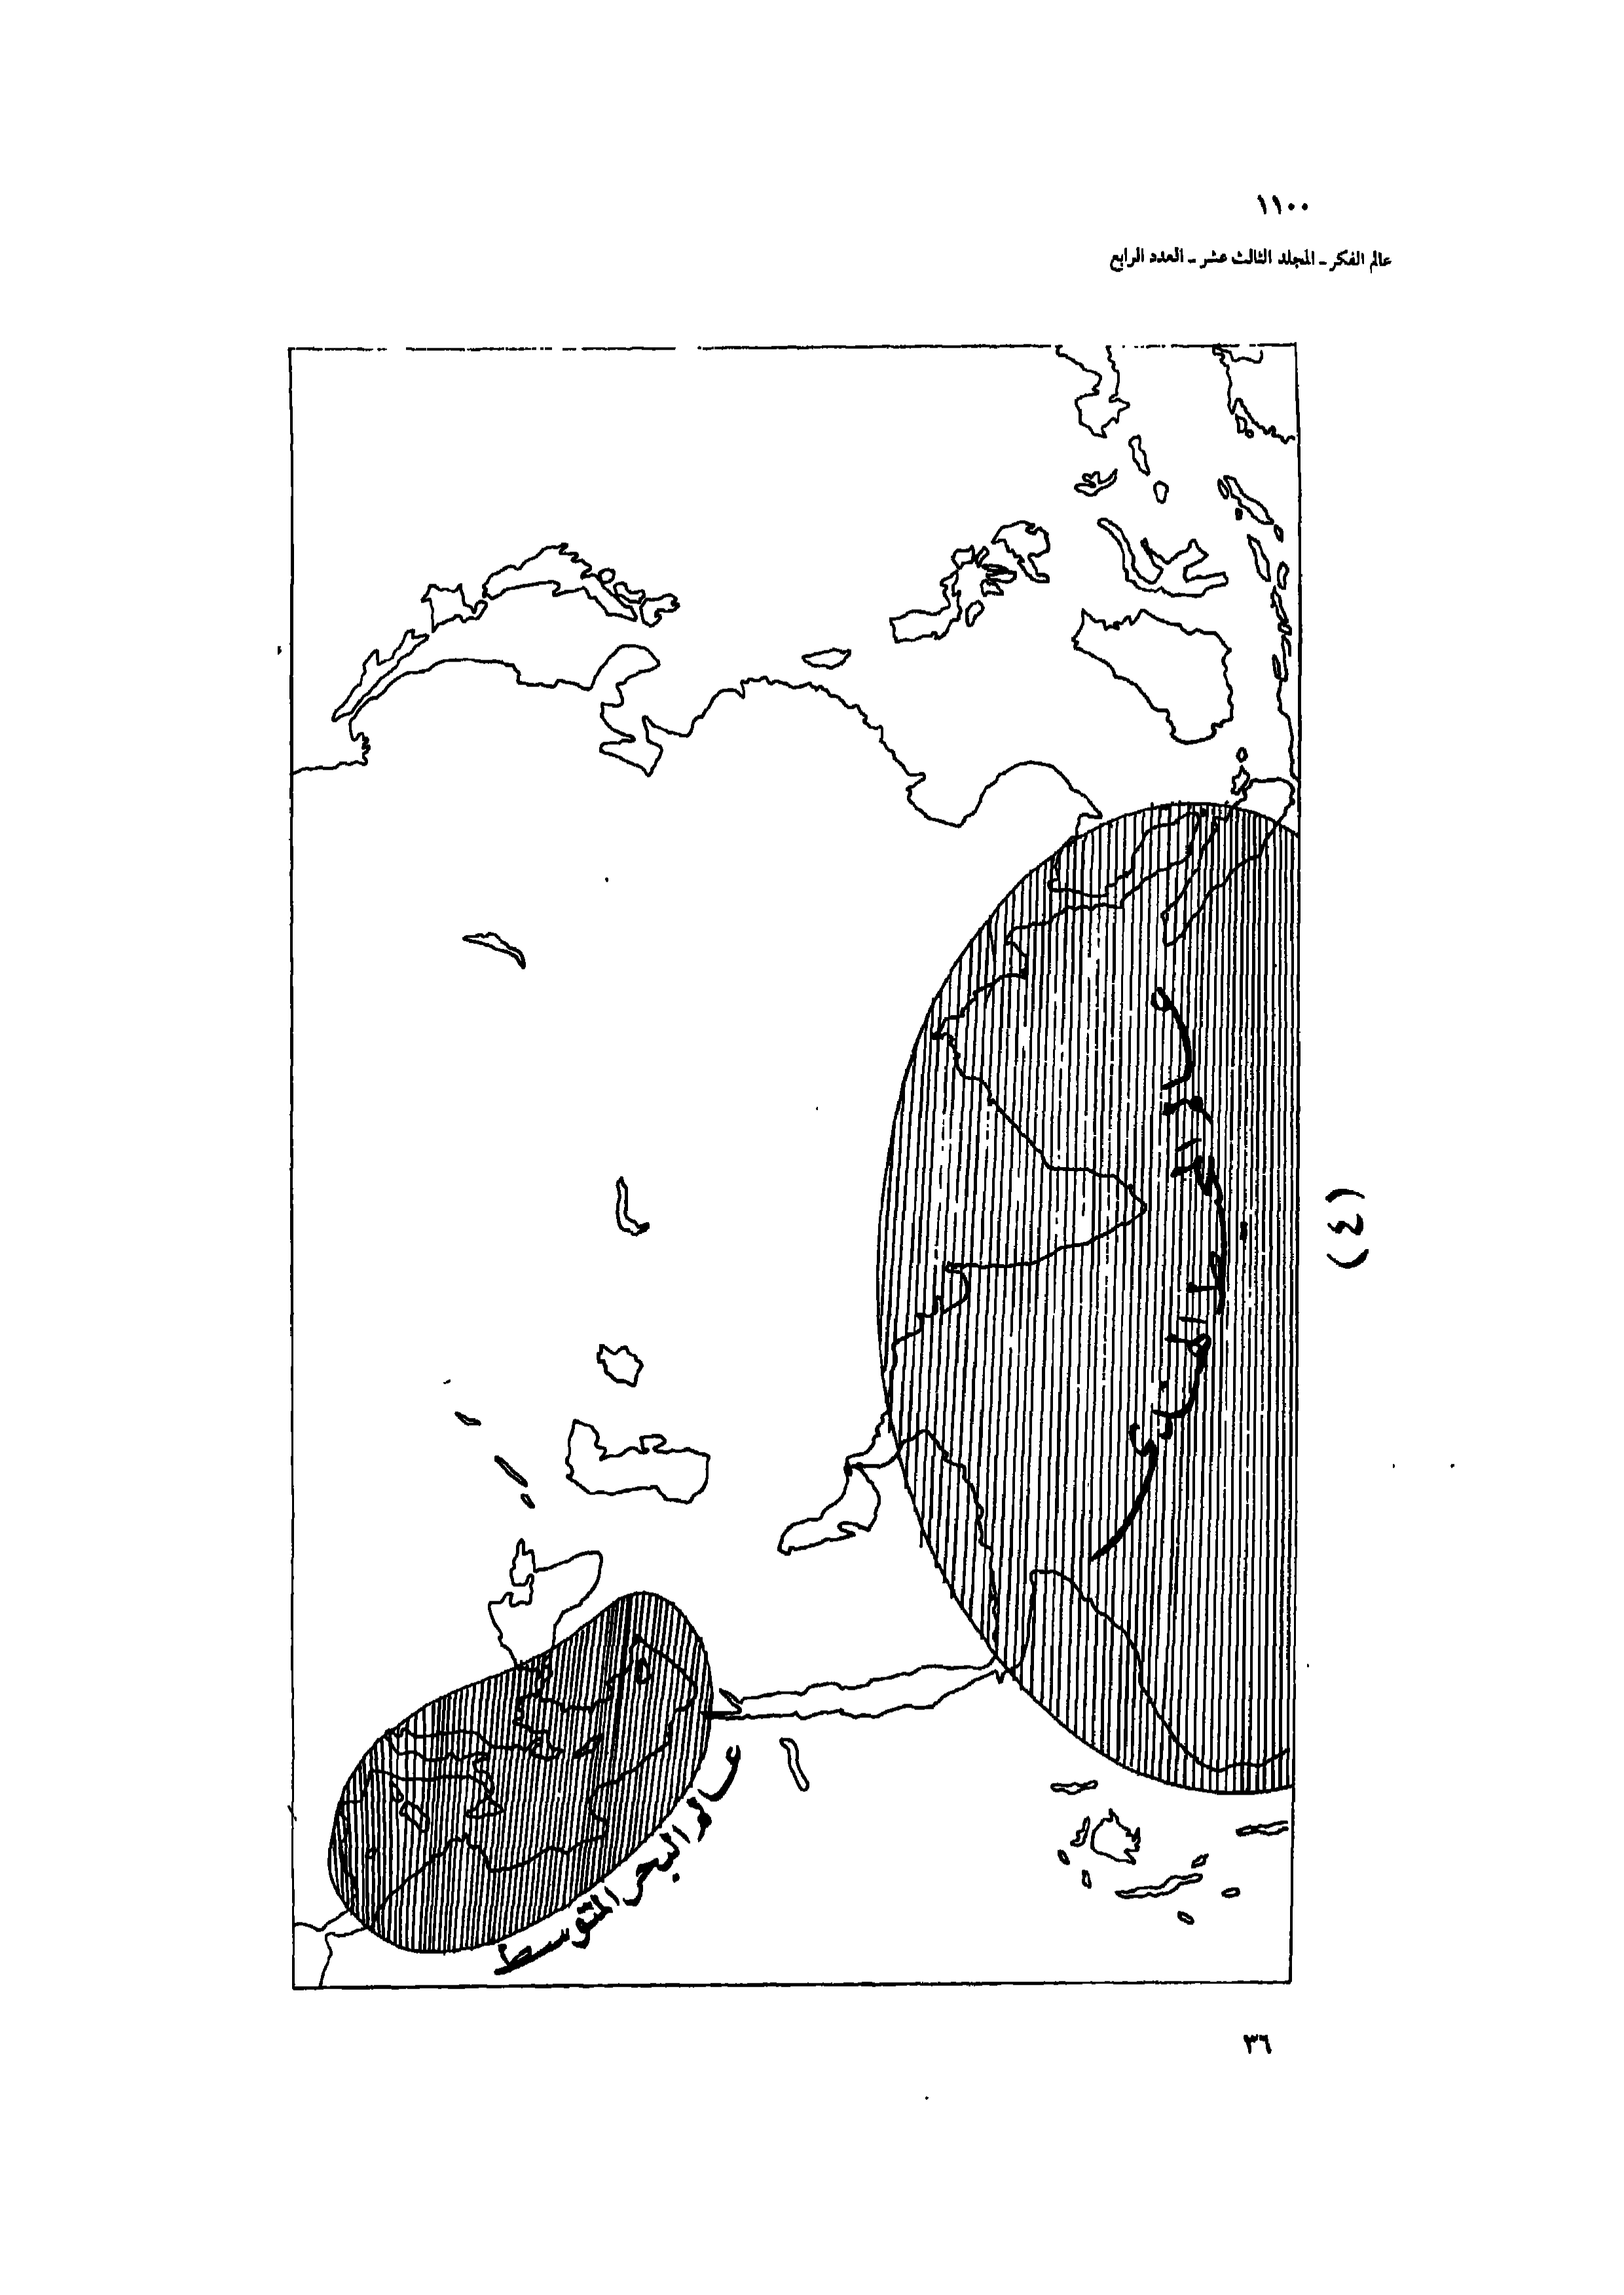 ١١٠٠
عالم الفكر - المجلد الثالث عشر - العدد الرابع
عالم المحيط الهندي
عالم البحر المتوسط
(٤)
٣٦